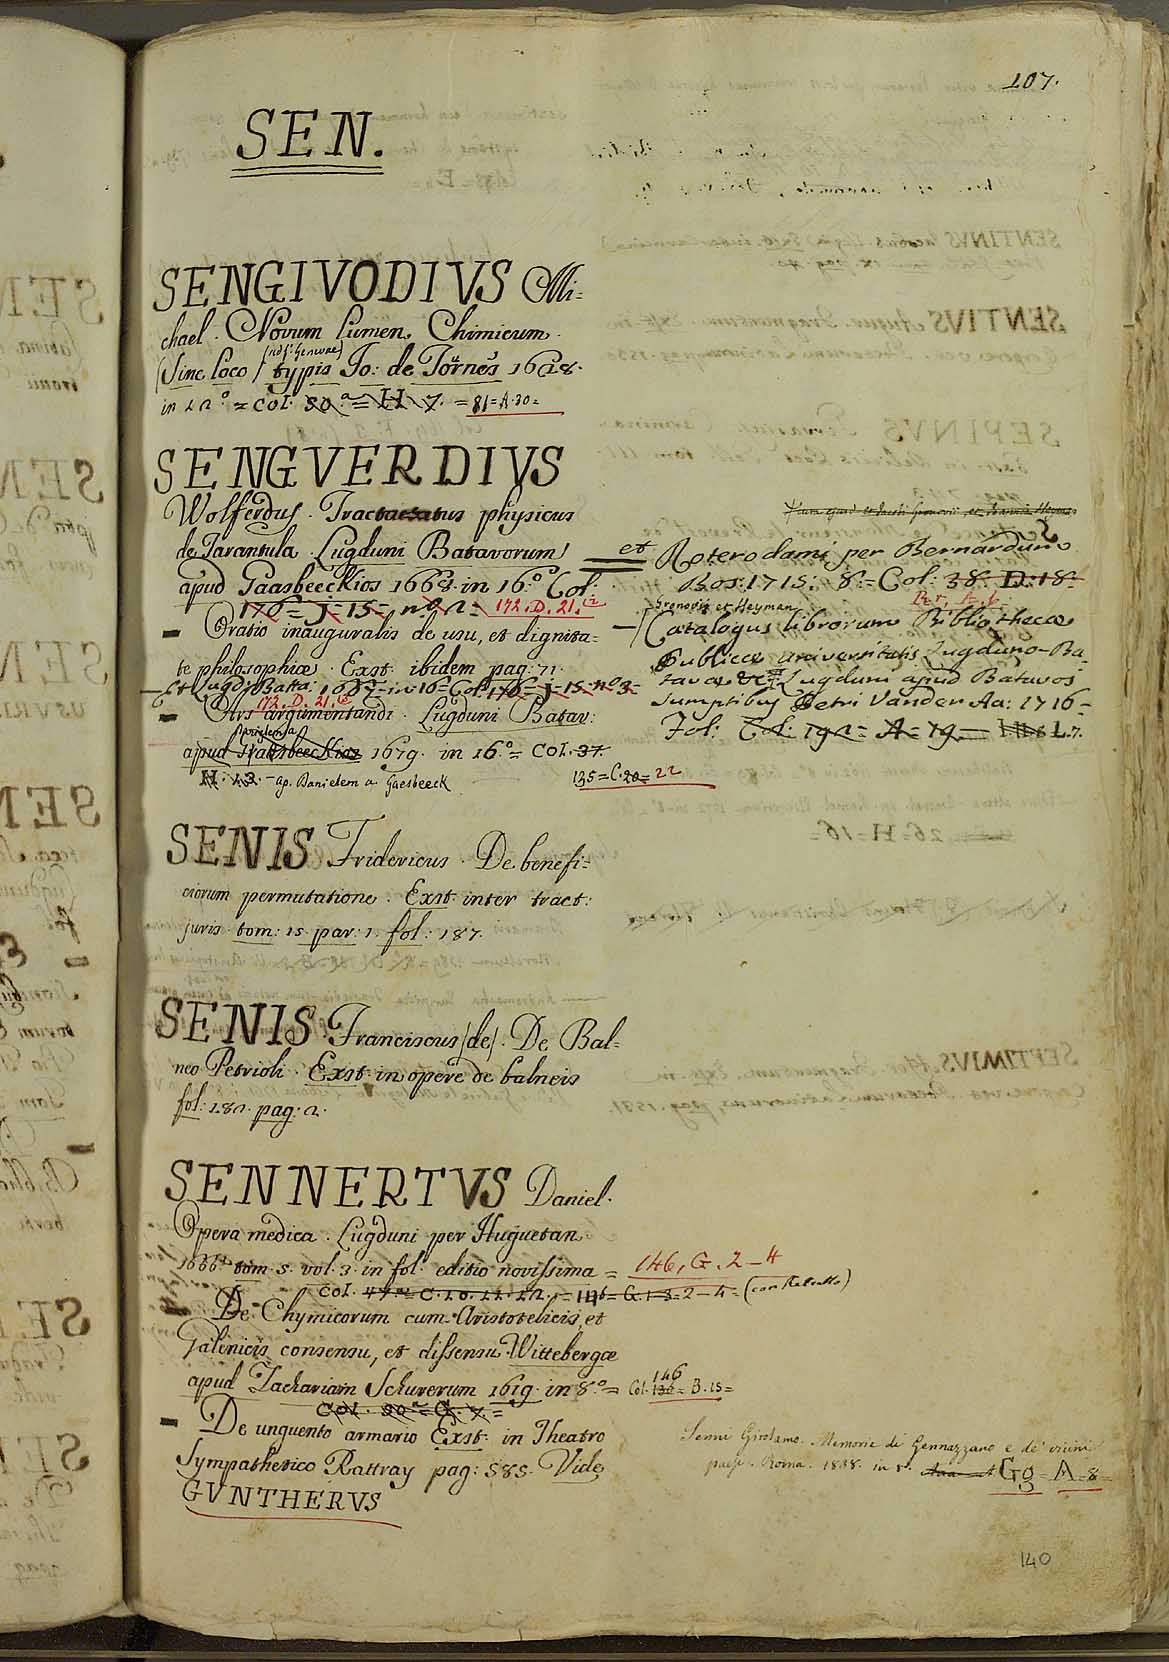 107.
SEN.
SENGIVODIVS Mi=
chael. Novum Lumen Chimicum.
(Sine loco / typis Jo: de Törnes 1628.
in 12.° = Col. 50.a = H 7. = 81=A.30=
SENGVERDIVS
Wolferdus. Tractatus physicus
de Tarantula. Lugduni Batavorum
apud Gaasbeeckios 1668. in 16.° Col:
176= j= 15= n° 2= 172.D.21.
– Oratio inauguralis de usu, et dignita=
te philosophiæ. Exst. ibidem pag: 71.
– Et Lugd: Batta: 1667= in 16= Col: 176= j= 15= n° 3=
172.D.21.
– Ars argumentandi. Lugduni Batav:
apud Gaasbeeckios 1679. in 16.° = Col. 37.
H. 43. – ap. Danielem a Gaesbeeck
135=C.20= 22
SENIS Fridericus. De benefi=
ciorum permutatione. Exst. inter tract:
juris tom: 15. par: 1. fol: 187.
SENIS Franciscus /de/. De Bal=
neo Petrioli. Exst. in opere de balneis
fol: 182. pag: 2.
SENNERTVS Daniel.
Opera medica. Lugduni per Huguetan
1666. tom 5. vol. 3. in fol. editio novissima = 146, G. 2–4
Col. 47.= C. 20. 21. 22. = 146= G. 1=3= 2–4=
– De Chymicorum cum Aristotelicis, et
Galenicis consensu, et dissensu. Wittebergæ
apud Zachariam Schurerum 1619. in 8.° = Col. 146 = B. 15=
– De unguento armario Exst. in Theatro
Sympathetico Rattray pag: 585. Vide
GVNTHERVS
et Roterodami per Bernardum
Bos: 1715: 8.°= Col: 38. D: 18.
Gronovii et Heyman
– Catalogus librorum Bibliothecæ
Publicæ universitatis Lugduno-Ba=
tavæ &c. Lugduni apud Batavos
sumptibus Petri Vander Aa: 1716=
Fol: Col: 192= A= 19.= L.7.
Senni Girolamo. Memorie di Gennazzano e de' vicini
paesi. Roma. 1838. in 8.° Gg=A=8=
140